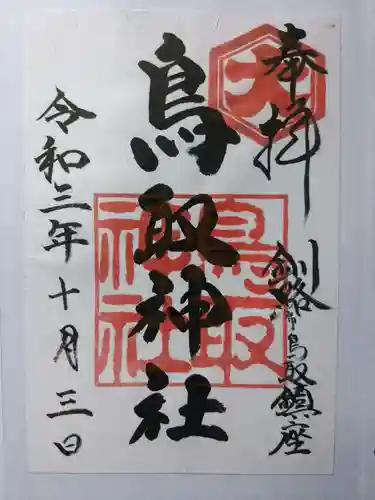 奉拝
釧路市鳥取鎮座
鳥取神社
令和三年十月三日
大
鳥取
神社